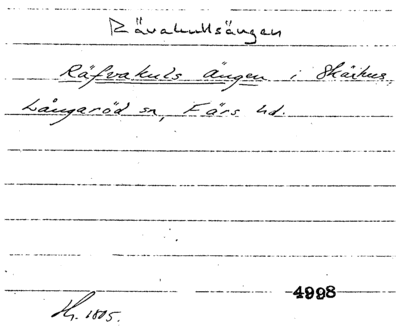 Rävakullsängen
Räfvakuls Ängen i Skåhus,
Långaröd sn, Färs hd.
4998
Hy. 1805.